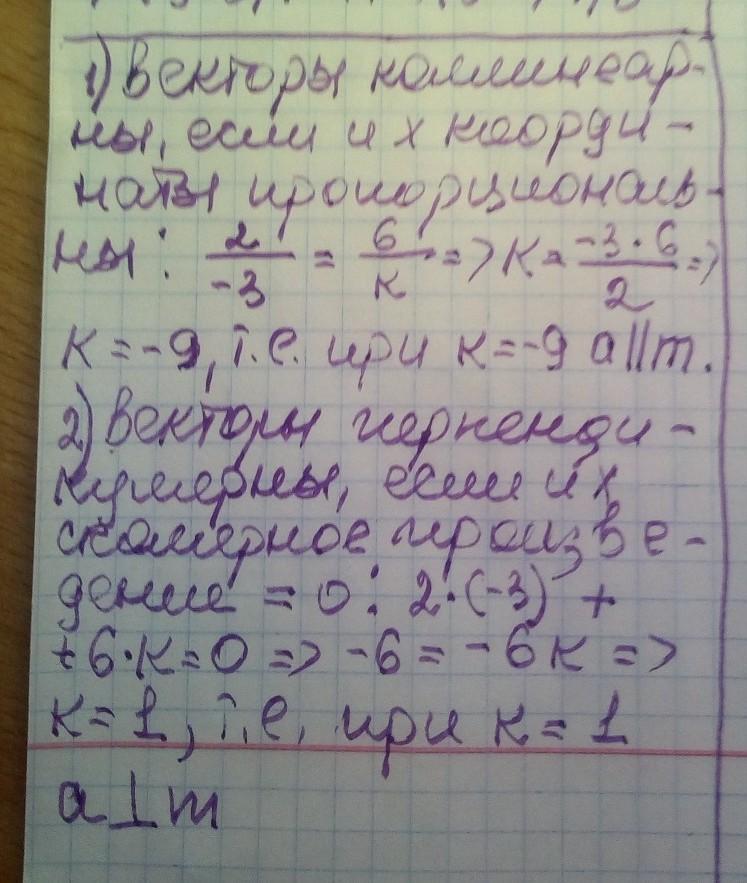 1) Векторы коллинеар-
ны, если их коорди-
наты пропорциональ-
ны: 2/-3 = 6/к => к = -3·6/2 =>
к = -9, т.е. при к = -9 a || m.
2) Векторы перпенди-
кулярны, если их
скалярное произве-
дение = 0: 2·(-3) +
+6·к = 0 => -6 = -6к =>
к = 1, т.е. при к = 1
a ⊥ m